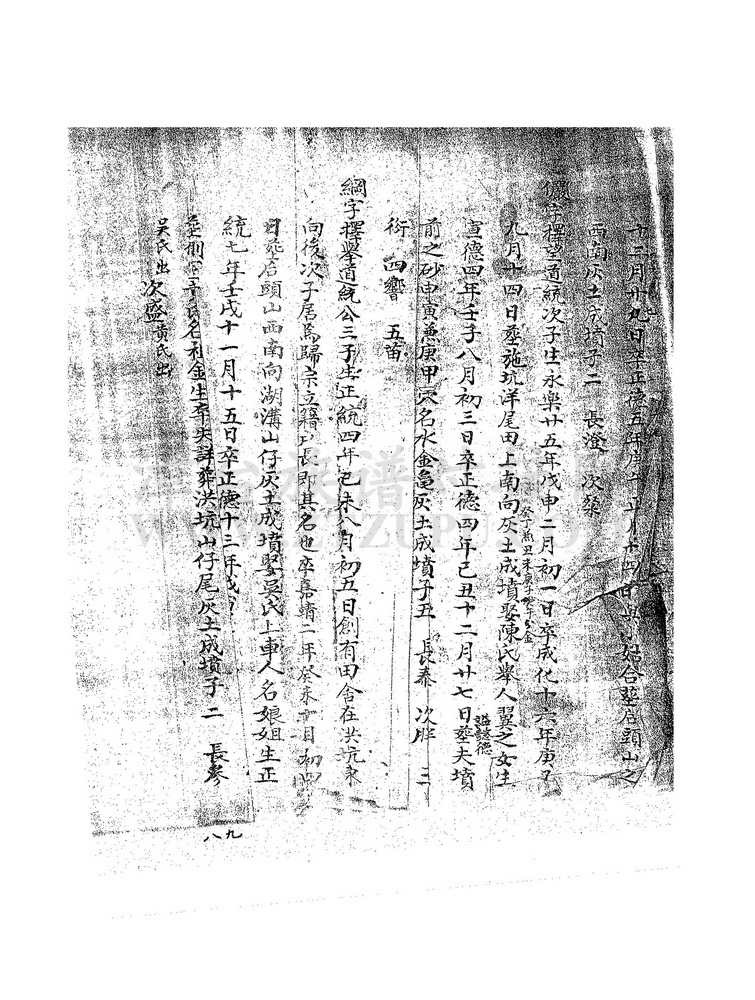 十二月廿九日卒正德五年庚午 月十四日與 妣合塟店頭山之
西南灰土成墳子二 長澄 次築
儼字擇望道統次子生永樂廿五年戊申二月初一日卒成化十六年庚子
九月廿四日塟施坑洋尾田上南向灰土成墳娶陳氏舉人翼之女生
宣德四年壬子八月初三日卒正德四年己丑十二月廿七日塟夫墳
前之砂申寅兼庚甲穴名水金龜灰土成墳子五 長泰 次胖 三
衍 四響 五苗
綱字擇舉道統公三子生正統四年己未八月初五日創有田舍在洪坑東
向後次子居焉歸宗立籍戶長即其名也卒嘉靖二年癸未 月初四
日塟店頭山西南向湖溝山仔灰土成墳娶吳氏上車人名娘姐生正
統七年壬戌十一月十五日卒正德十三年戊
塟側室 氏名利金生卒失詳葬洪坑山仔尾灰土成墳子二 長參
吳氏出 次盛黃氏出
八九